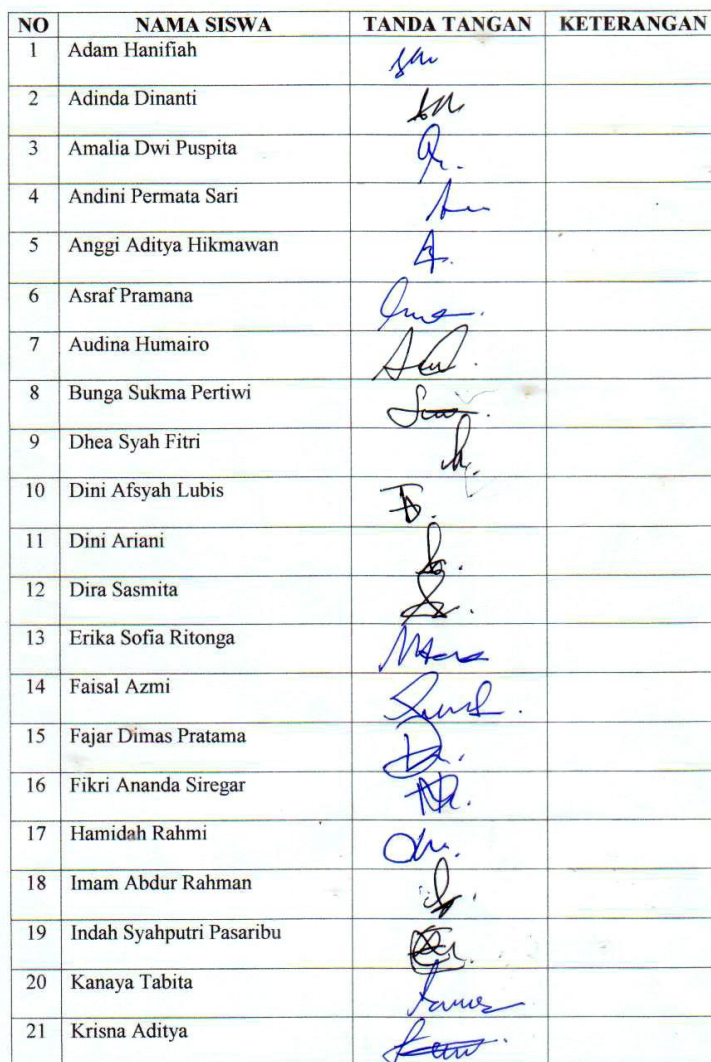 NO NAMA SISWA TANDA TANGAN KETERANGAN
1 Adam Hanifiah
2 Adinda Dinanti
3 Amalia Dwi Puspita
4 Andini Permata Sari
5 Anggi Aditya Hikmawan
6 Asraf Pramana
7 Audina Humairo
8 Bunga Sukma Pertiwi
9 Dhea Syah Fitri
10 Dini Afsyah Lubis
11 Dini Ariani
12 Dira Sasmita
13 Erika Sofia Ritonga
14 Faisal Azmi
15 Fajar Dimas Pratama
16 Fikri Ananda Siregar
17 Hamidah Rahmi
18 Imam Abdur Rahman
19 Indah Syahputri Pasaribu
20 Kanaya Tabita
21 Krisna Aditya